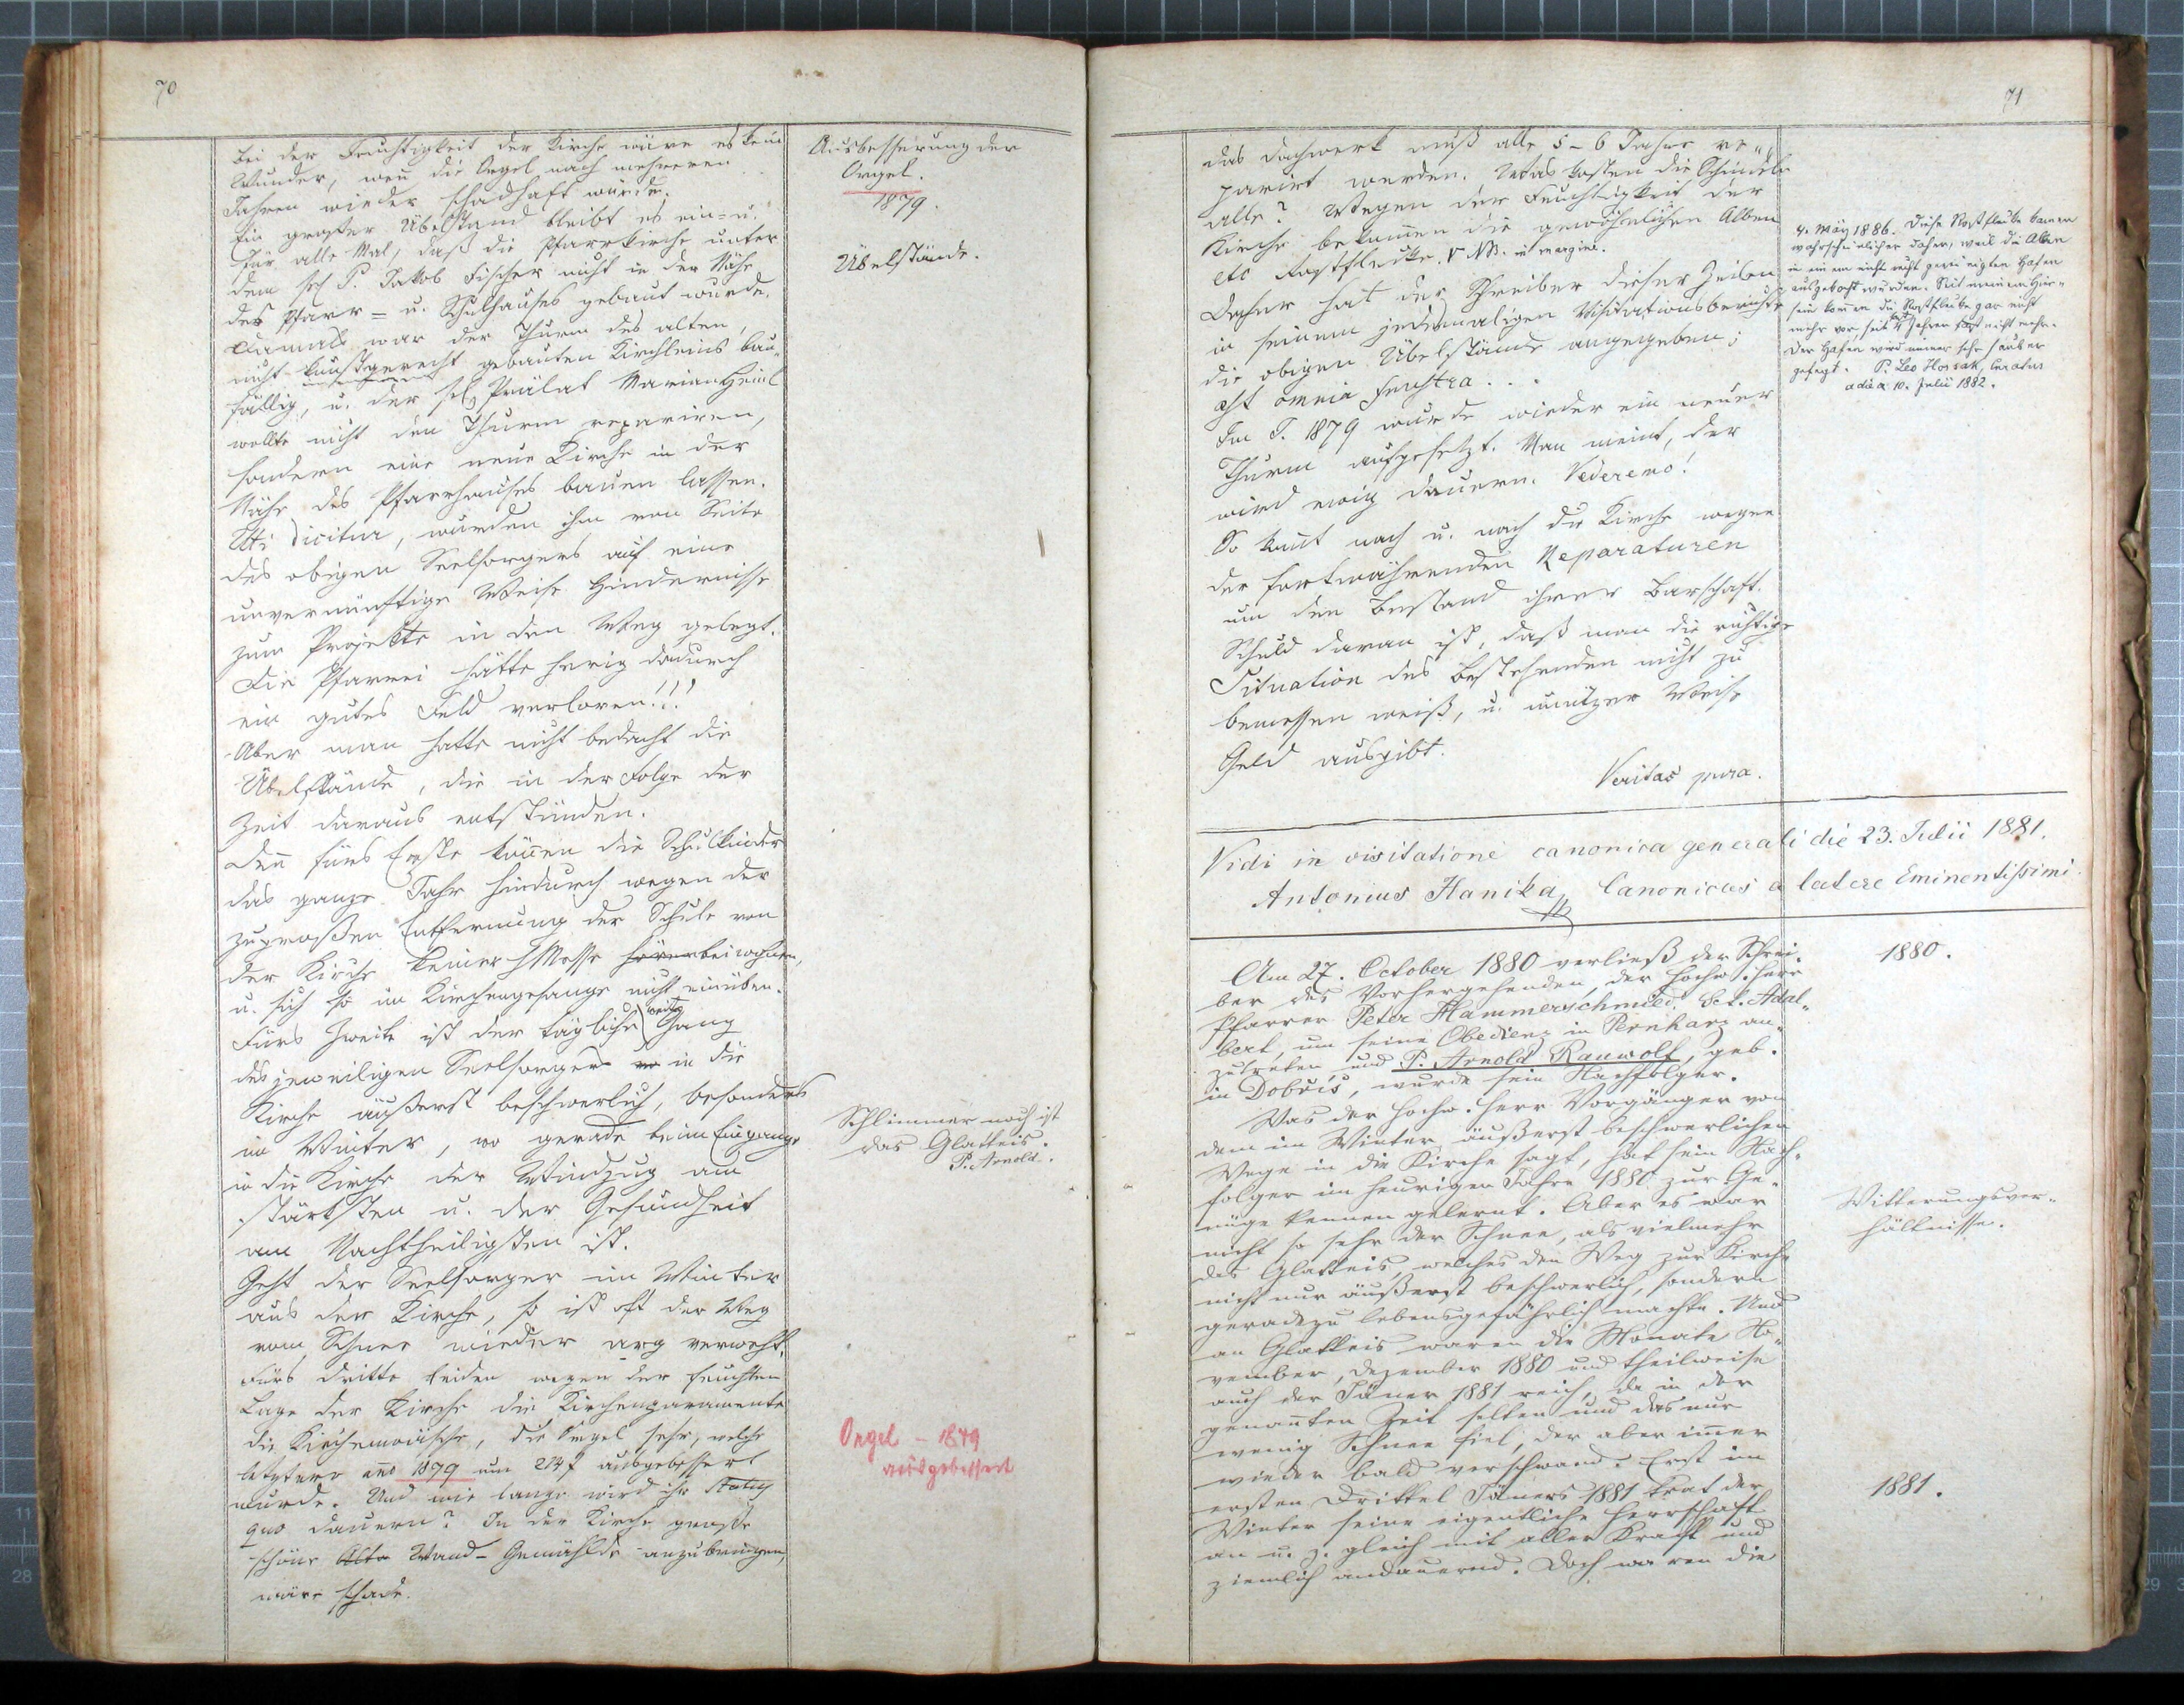 70
Bei der Feuchtigkeit der Kirche wäre es kein
Wunder, wen die Orgel nach mehreren
Jahren wieder schadhaft würde.
Ein großer Übelstand bleibt es ein- u.
für alle Mal, daß die Pfarrkirche unter
dem sel. P. Jakob Fischer nicht in der Nähe
des Pfarr- u. Schulhauses gebaut wurde.
Damals war der Thurm des alten,
nicht kunstgerecht gebauten Kirchleins bau-
fällig, u. der sel. Prälat Marian Heinl
wollte nicht den Thurm repariren,
sondern eine neue Kirche in der
Nähe des Pfarrhauses bauen lassen.
Uti dicitur, wurden ihm von Seite
des obigen Seelsorgers auf eine
unvernünftige Weise Hindernisse
zum Projekte in den Weg gelegt.
Die Pfarrei hätte dadurch
ein gutes Feld verloren!!!
Aber man hatte nicht bedacht die
Übelstände, die in der Folge der
Zeit daraus entstünden.
Den fürs Erste könen die Schulkinder
das ganze Jahr hindurch wegen der
zu großen Entfernung der Schule von
der Kirche keiner h Messe hören beiwohnen,
u. sich so im Kirchengesange nicht einüben.
Fürs Zweite ist der tägliche weite Gang
des jeweiligen Seelsorgers in die
Kirche äußerst beschwerlich, besonders
im Winter, wo gerade beim Eingange
in die Kirche der Windzug am
stärksten u. der Gesundheit
am Nachtheiligsten ist.
Geht der Seelsorger im Winter
aus der Kirche, so ist oft der Weg
vom Schnee wieder arg verweht.
Fürs Dritte leiden wegen der feuchten
Lage der Kirche die Kirchenparamente
die Kirchenwäsche, die Orgel sehr, welche
letztere ao 1879 um 214 f ausgebessert
wurde. Und wie lange wird ihr Status
quo dauern? In der Kirche große
schöne Alta Wand-Gemählde anzubringen,
wäre schade.
Ausbesserung der
Orgel.
1879.
Übelstände.
Schlimmer noch ist
das Glatteis.
P. Arnold.
Orgel - 1879
ausgebessert
71
das Dachwerk muß alle 5-6 Jahre re-
parirt werden. Was kosten die Schindeln
alle? Wegen der Feuchtigkeit der
Kirche bekomen die gewöhnlichen Alben
etc Rostflecke. V NB. in margine.
Daher hat der Schreiber dieser Zeilen
in seinem jedesmaligen Visitationsberichte
die obigen Übelstände angegeben;
ast omnia frustra...
Im J. 1879 wurde wieder ein neuer
Thurm aufgesetzt. Man meint, der
wird ewig dauern. Vederemo!
So komt nach u. nach die Kirche wegen
der fortwährenden Reparaturen
um den Bestand ihrer Barschaft.
Schuld daran ist, daß man die richtige
Situation des Bestehenden nicht zu
bemessen weiß, u. unnützer Weise
Geld ausgibt.
Veritas pura.
4. May 1886. Diese Rostflecke kamen
wahrscheinlicher daher, weil die Alben
in einem nicht recht gereinigten Hafen
ausgekocht wurden. Seit meinem Hier-
sein komen die Rostflecke gar nicht
mehr vor, seit 4 Jahren fast nicht mehr.
Der Hafen wird immer sehr sauber
gefegt. P. Leo Hossak, Curatus
a die 10. Julii 1882.
Vidi in visitatione canonica generali die 23. Julii 1881.
Antonius Hanika, Canonicus a latere Eminentissimi.
Am 27. October 1880 verließ der Schrei-
ber des Vorhergehenden, der hochw. Herr
Pfarrer Peter Hammerschmied, Sct. Adal-
bert, um seine Obedienz in Pernharz an-
zutreten, und P. Arnold Rauwolf, geb.
in Dobřiš, wurde sein Nachfolger.
Was der hochw. Herr Vorgänger von
dem im Winter äußerst beschwerlichen
Wege in die Kirche sagt, hat sein Nach-
folger im heurigen Jahre 1880 zur Ge-
nüge kennen gelernt. Aber es war
nicht so sehr der Schnee, als vielmehr
das Glatteis, welches den Weg zur Kirche
nicht nur äußerst beschwerlich, sondern
geradezu lebensgefährlich machte. Und
an Glatteis waren die Monate No-
vember, Dezember 1880 und theilweise
auch der Jäner 1881 reich, da in der
genanten Zeit selten und das nur
wenig Schnee fiel, der aber imer
wieder bald verschwand. Erst im
ersten Drittel Jäners 1881 trat der
Winter seine eigentliche Herrschaft
an u. z. gleich mit aller Kraft und
ziemlich andauernd. Doch waren die
1880.
Witterungsver-
hältnisse.
1881.